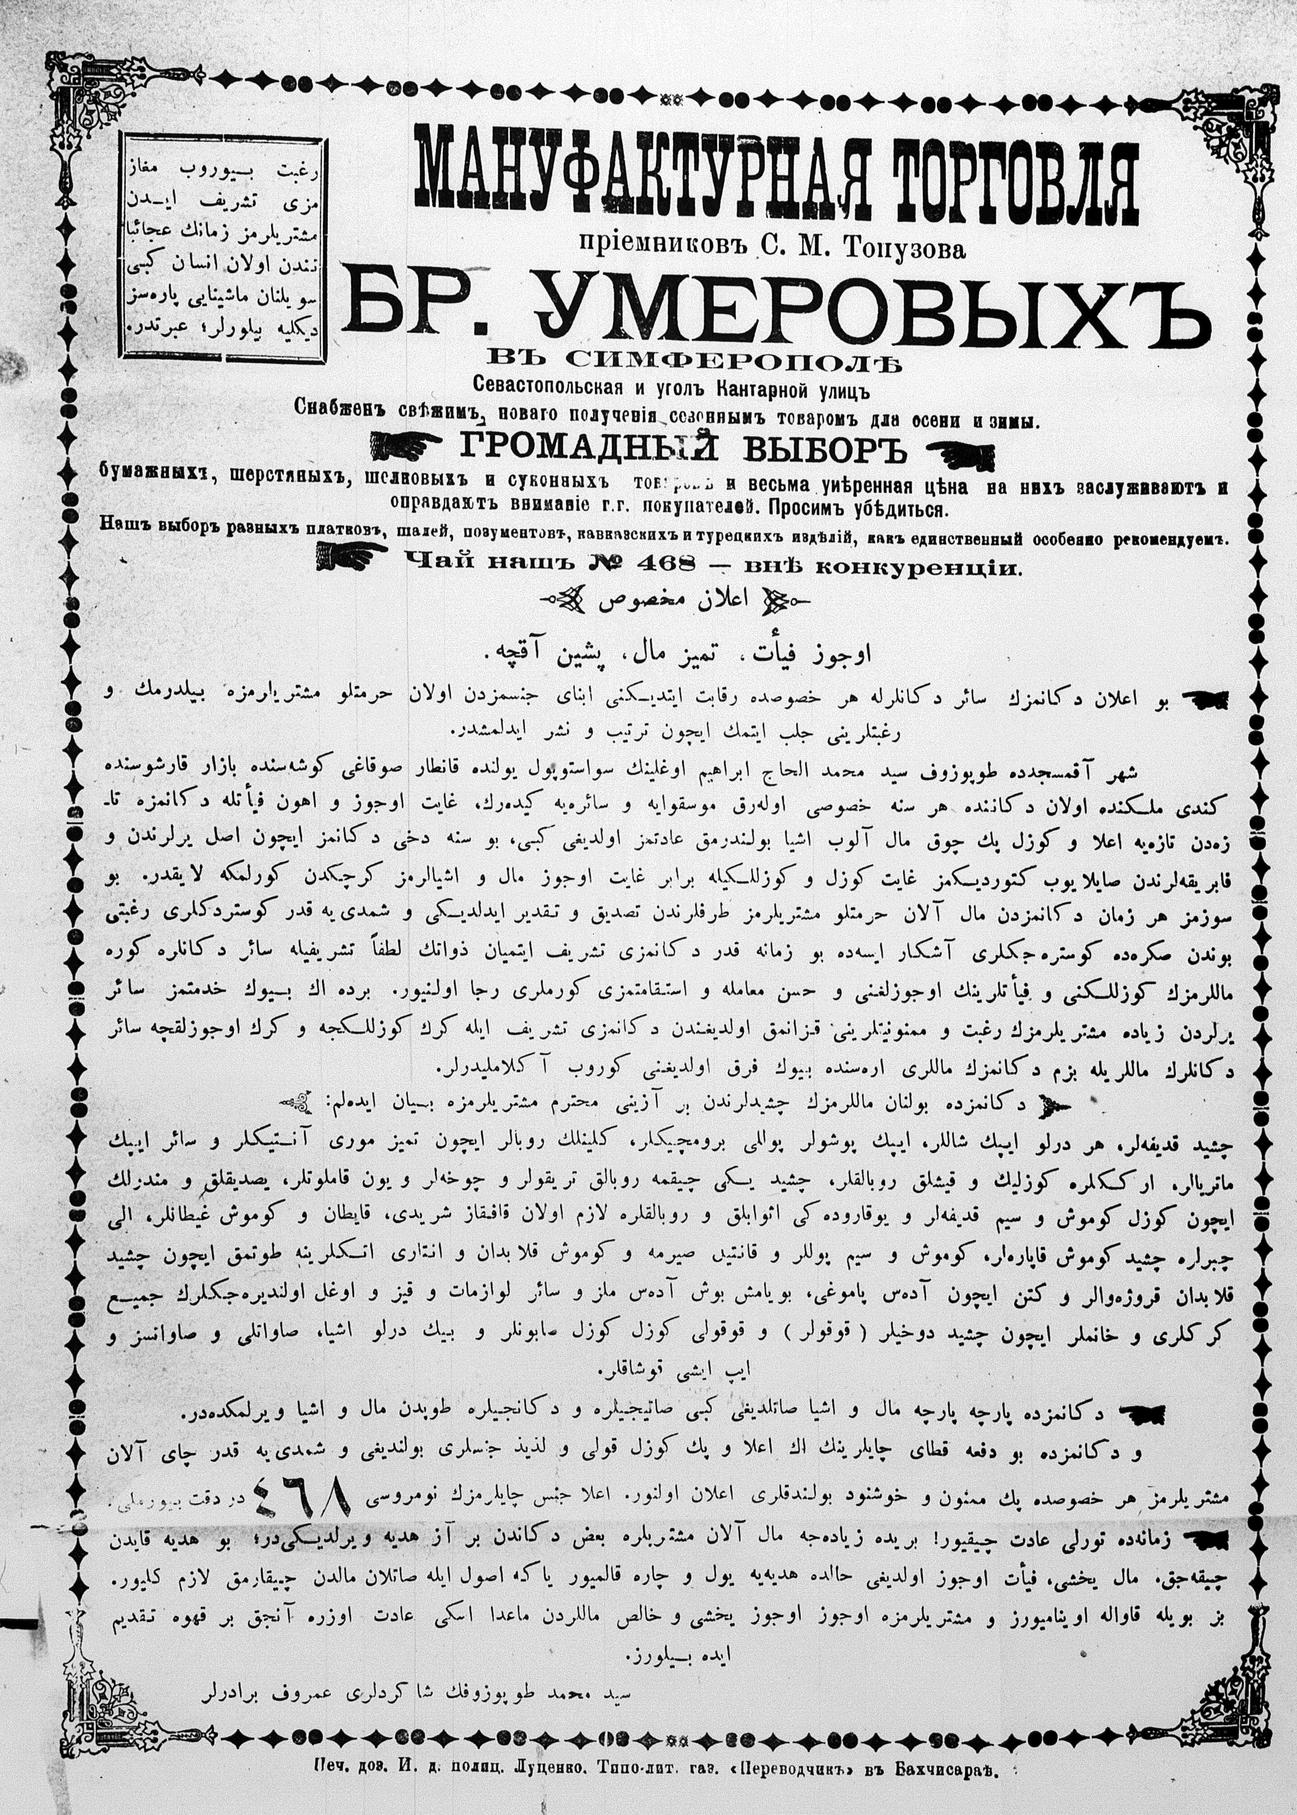 МАНУФАКТУРНАЯ ТОРГОВЛЯ
пріемниковъ С. М. Топузова
БР. УМЕРОВЫХЪ
ВЪ СИМФЕРОПОЛѢ
Севастопольская и уголъ Кантарной улицъ
Снабженъ свѣжимъ, новаго полученія сезоннымъ товаромъ для осени и зимы.
ГРОМАДНЫЙ ВЫБОРЪ
бумажныхъ, шерстяныхъ, шелковыхъ и суконныхъ товаровъ и весьма умѣренная цѣна на нихъ заслуживаютъ и
оправдаютъ вниманіе г.г. покупателей. Просимъ убѣдиться.
Нашъ выборъ разныхъ платковъ, шалей, позументовъ, кавказскихъ и турецкихъ издѣлій, какъ единственный особенно рекомендуемъ.
Чай нашъ № 468 — внѣ конкуренціи.
رغبت بيوروب مغاز
مزى تشريف ايدن
مشتريلرمز زمانك عجائبا
تندن اولان انسان كبى
سويلنان ماشينايى پاره‌سز
ديكليه بيلورلر؛ عبرتدر.
اعلان مخصوص
اوجوز فيأت، تميز مال، پشين آقچه.
بو اعلان دكانمزك سائر دكانلرله هر خصوصده رقابت ايتديكنى ابناى جنسمزدن اولان حرمتلو مشتريلرمزه بيلدرمك و
رغبتلرينى جلب ايتمك ايچون ترتيب و نشر ايدلمشدر.
شهر آقمسجدده طوپوزوف سيد محمد الحاج ابراهيم اوغلينك سواستوپول يولنده قانطار صوقاغى كوشه‌سنده بازار قارشوسنده
كندى ملكنده اولان دكاننده هر سنه خصوصى اوله‌رق موسقوايه و سائره‌يه كيده‌رك، غايت اوجوز و اهون فيأتله دكانمزه تا-
زه‌دن تازه‌يه اعلا و كوزل پك چوق مال آلوب اشيا بولندرمق عادتمز اولديغى كبى، بو سنه دخى دكانمز ايچون اصل يرلرندن و
فابريقه‌لرندن صايلايوب كتورديكمز غايت كوزل و كوزللكيله برابر غايت اوجوز مال و اشيالرمز كرچكدن كورلمكه لايقدر. بو
سوزمز هر زمان دكانمزدن مال آلان حرمتلو مشتريلرمز طرفلرندن تصديق و تقدير ايدلديكى و شمدى‌يه قدر كوستردكلرى رغبتى
بوندن صكره‌ده كوستره‌جكلرى آشكار ايسه‌ده بو زمانه قدر دكانمزى تشريف ايتميان ذواتك لطفاً تشريفيله سائر دكانلره كوره
ماللرمزك كوزللكنى و فيأتلرينك اوجوزلغنى و حسن معامله و استقامتمزى كورملرى رجا اولنيور. برده اك بيوك خدمتمز سائر
يرلردن زياده مشتريلرمزك رغبت و ممنونيتلرينى قزانمق اولديغندن دكانمزى تشريف ايله كرك كوزللكجه و كرك اوجوزلقجه سائر
دكانلرك ماللريله بزم دكانمزك ماللرى اره‌سنده بيوك فرق اولديغنى كوروب آكلامليدرلر.
دكانمزده بولنان ماللرمزك چشيدلرندن بر آزينى محترم مشتريلرمزه بيان ايده‌لم:
چشيد قديفه‌لر، هر درلو ايپك شاللر، ايپك پوشولر پوللى برومچيكلر، كلينلك روبالر ايچون تميز مورى آنتيكلر و سائر ايپك
ماتريالر، اركلره كوزليك و قيشلق روبالقلر، چشيد يكى چيقمه روبالق تريقولر و چوخه‌لر و يون قاملوتلر، يصديقلق و مندرلك
ايچون كوزل كوموش و سيم قديفه‌لر و يوقاروده‌كى اثوابلق و روبالقلره لازم اولان قافقاز شريدى، قايطان و كوموش غيطانلر، الى
چبرلره چشيد كوموش قاپاره‌لر، كوموش و سيم پوللر و قانتيل صيرمه و كوموش قلابدان و انتارى اتكلرينه طوتمق ايچون چشيد
قلابدان قروژه‌والر و كتن ايچون آده‌س پاموغى، بويامش بوش آده‌س ملز و سائر لوازمات و قيز و اوغل اولنديره‌جكلرك جميع
كركلرى و خانملر ايچون چشيد دوخيلر (قوقولر) و قوقولى كوزل كوزل صابونلر و بيك درلو اشيا، صاواتلى و صاوانسز و
ايپ ايشى قوشاقلر.
دكانمزده پارچه پارچه مال و اشيا صاتلديغى كبى صاتيجيلره و دكانجيلره طوپدن مال و اشيا ويرلمكده‌در.
و دكانمزده بو دفعه قطاى چايلرينك اك اعلا و پك كوزل قولى و لذيذ جنسلرى بولنديغى و شمدى‌يه قدر چاى آلان
مشتريلرمز هر خصوصده پك ممنون و خوشنود بولندقلرى اعلان اولنور. اعلا جنس چايلرمزك نومروسى ٤٦٨ در دقت بيورملى.
زمانه‌ده تورلى عادت چيقيور! بريده زياده‌جه مال آلان مشتريلره بعض دكاندن بر آز هديه ويرلديكى‌در؛ بو هديه قايدن
چيقه‌جق. مال يخشى، فيأت اوجوز اولديغى حالده هديه‌يه يول و چاره قالميور ياكه اصول ايله صاتلان مالدن چيقارمق لازم كليور.
بز بويله قاواله اوينامیورز و مشتريلرمزه اوجوز اوجوز يخشى و خالص ماللردن ماعدا اسكى عادت اوزره آنجق بر قهوه تقديم
ايده بيلورز.
سيد محمد طوپوزوفك شاكردلرى عمروف برادرلر
Печ. доз. И. д. полиц. Луценко. Типо-лит. газ. «Переводчикъ» въ Бахчисараѣ.